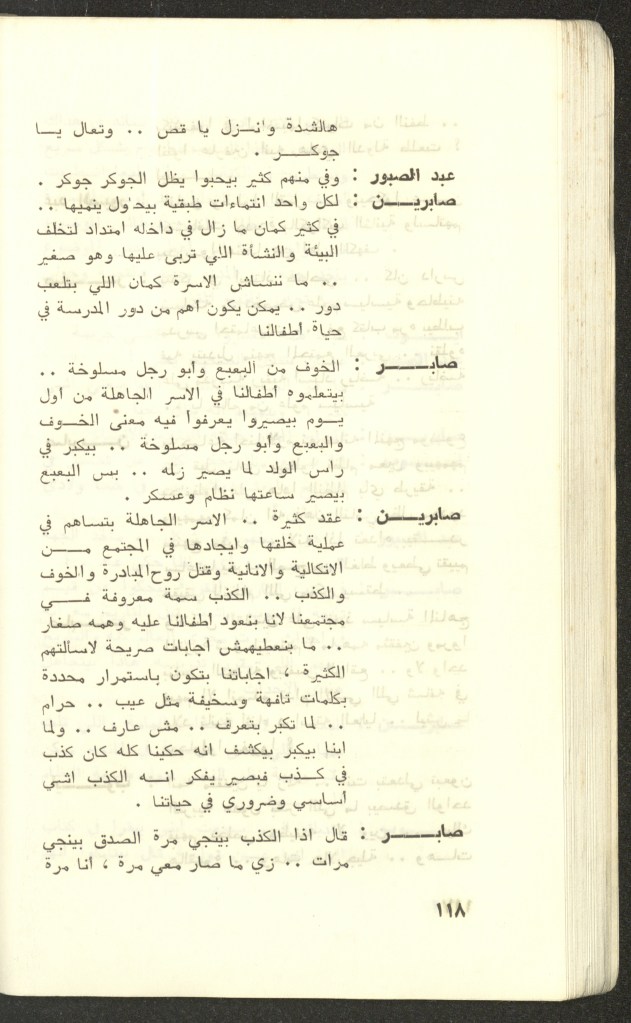 هالشدة وانـزل يا قص .. وتعال يـا
جوكـر .
عبد الصبور : وفي منهم كثير بيحبوا يظل الجوكر جوكر .
صابريـــن : لكل واحد انتماءات طبقية بيحاول ينميها ..
في كثير كمان ما زال في داخله امتداد لتخلف
البيئة والنشأة اللي تربى عليها وهو صغير
.. ما ننساش الاسرة كمان اللي بتلعب
دور .. يمكن يكون أهم من دور المدرسة في
حياة أطفالنا
صابـــــر : الخوف من البعبع وأبو رجل مسلوخة ..
بيتعلموه أطفالنا في الأسر الجاهلة من أول
يـوم بيصيروا يعرفوا فيه معنى الخـوف
والبعبع وأبو رجل مسلوخة .. بيكبر في
راس الولد لما يصير زلمه .. بس البعبع
بيصير ساعتها نظام وعسكر .
صابريـــن : عقد كثيرة .. الاسر الجاهلة بتساهم في
عملية خلقها وايجادها في المجتمع مـــن
الاتكالية والانانية وقتل روح المبادرة والخوف
والكذب .. الكذب سمة معروفة فــي
مجتمعنا لانا بنعود اطفالنا عليه وهمه صغار
.. ما بنعطيهمش اجابات صريحة لاسالتهم
الكثيرة ، اجاباتنا بتكون باستمرار محددة
بكلمات تافهة وسخيفة مثل عيب .. حرام
.. لما تكبر بتعرف .. مش عارف .. ولما
ابنا بيكبر بيكشف انه حكينا كله كان كذب
في كـذب فبصير يفكر انــه الكذب اشي
أساسي وضروري في حياتنا .
صابـــــر : قال اذا الكذب بينجي مرة الصدق بينجي
مرات .. زي ما صار معي مرة ، أنا مرة
١١٨